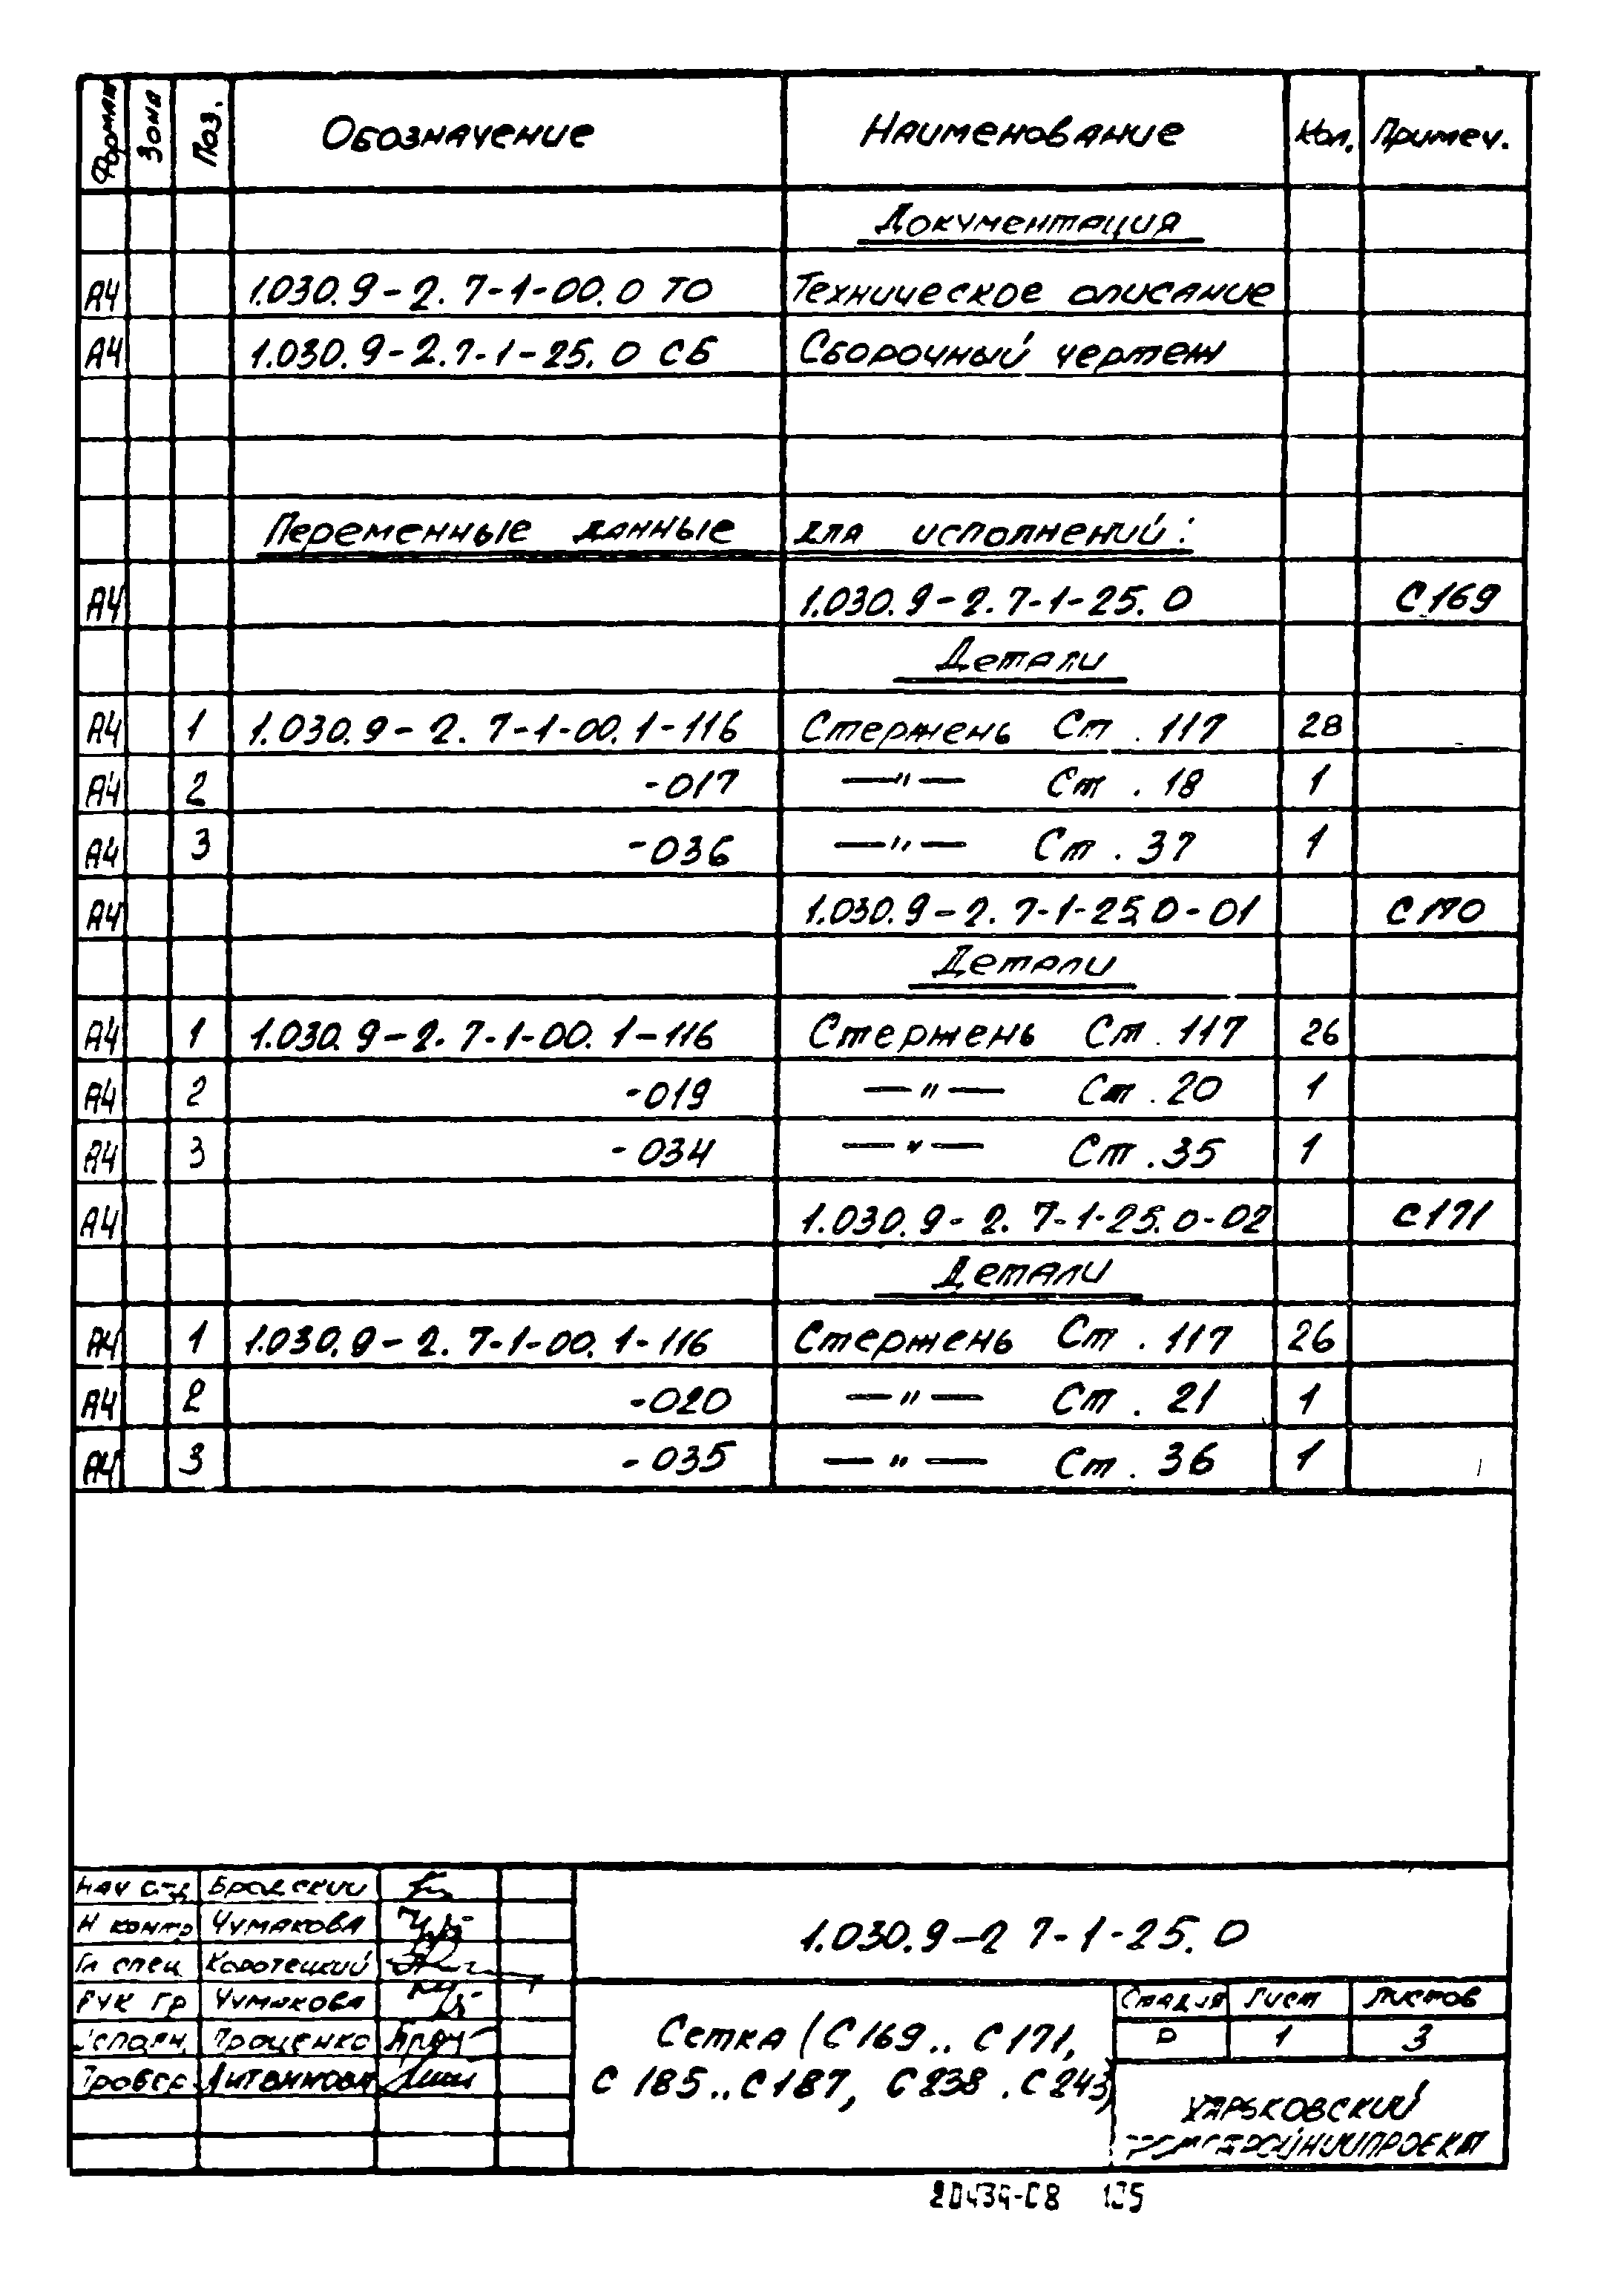 Формат Зона Поз. Обозначение Наименование Кол. Примеч.
Документация
А4 1.030.9-2.7-1-00.0 ТО Техническое описание
А4 1.030.9-2.7-1-25.0 СБ Сборочный чертеж
Переменные данные для исполнений:
А4 1.030.9-2.7-1-25.0 С169
Детали
А4 1 1.030.9-2.7-1-00.1-116 Стержень Ст.117 28
А4 2 -017 —"— Ст.18 1
А4 3 -036 —"— Ст.37 1
А4 1.030.9-2.7-1-25.0-01 С170
Детали
А4 1 1.030.9-2.7-1-00.1-116 Стержень Ст.117 26
А4 2 -019 —"— Ст.20 1
А4 3 -034 —"— Ст.35 1
А4 1.030.9-2.7-1-25.0-02 С171
Детали
А4 1 1.030.9-2.7-1-00.1-116 Стержень Ст.117 26
А4 2 -020 —"— Ст.21 1
А4 3 -035 —"— Ст.36 1
Нач отд Бродский
Н контр Чумакова
Гл спец Коротецкий
Рук гр Чумакова
Исполн. Проценко
Провер.
1.030.9-2 7-1-25.0
Сетка (С169.. С171,
С185..С187, С238.С243)
Стадия Лист Листов
Р 1 3
Харьковский
ПРОМСТРОЙНИИПРОЕКТ
20434-08 125